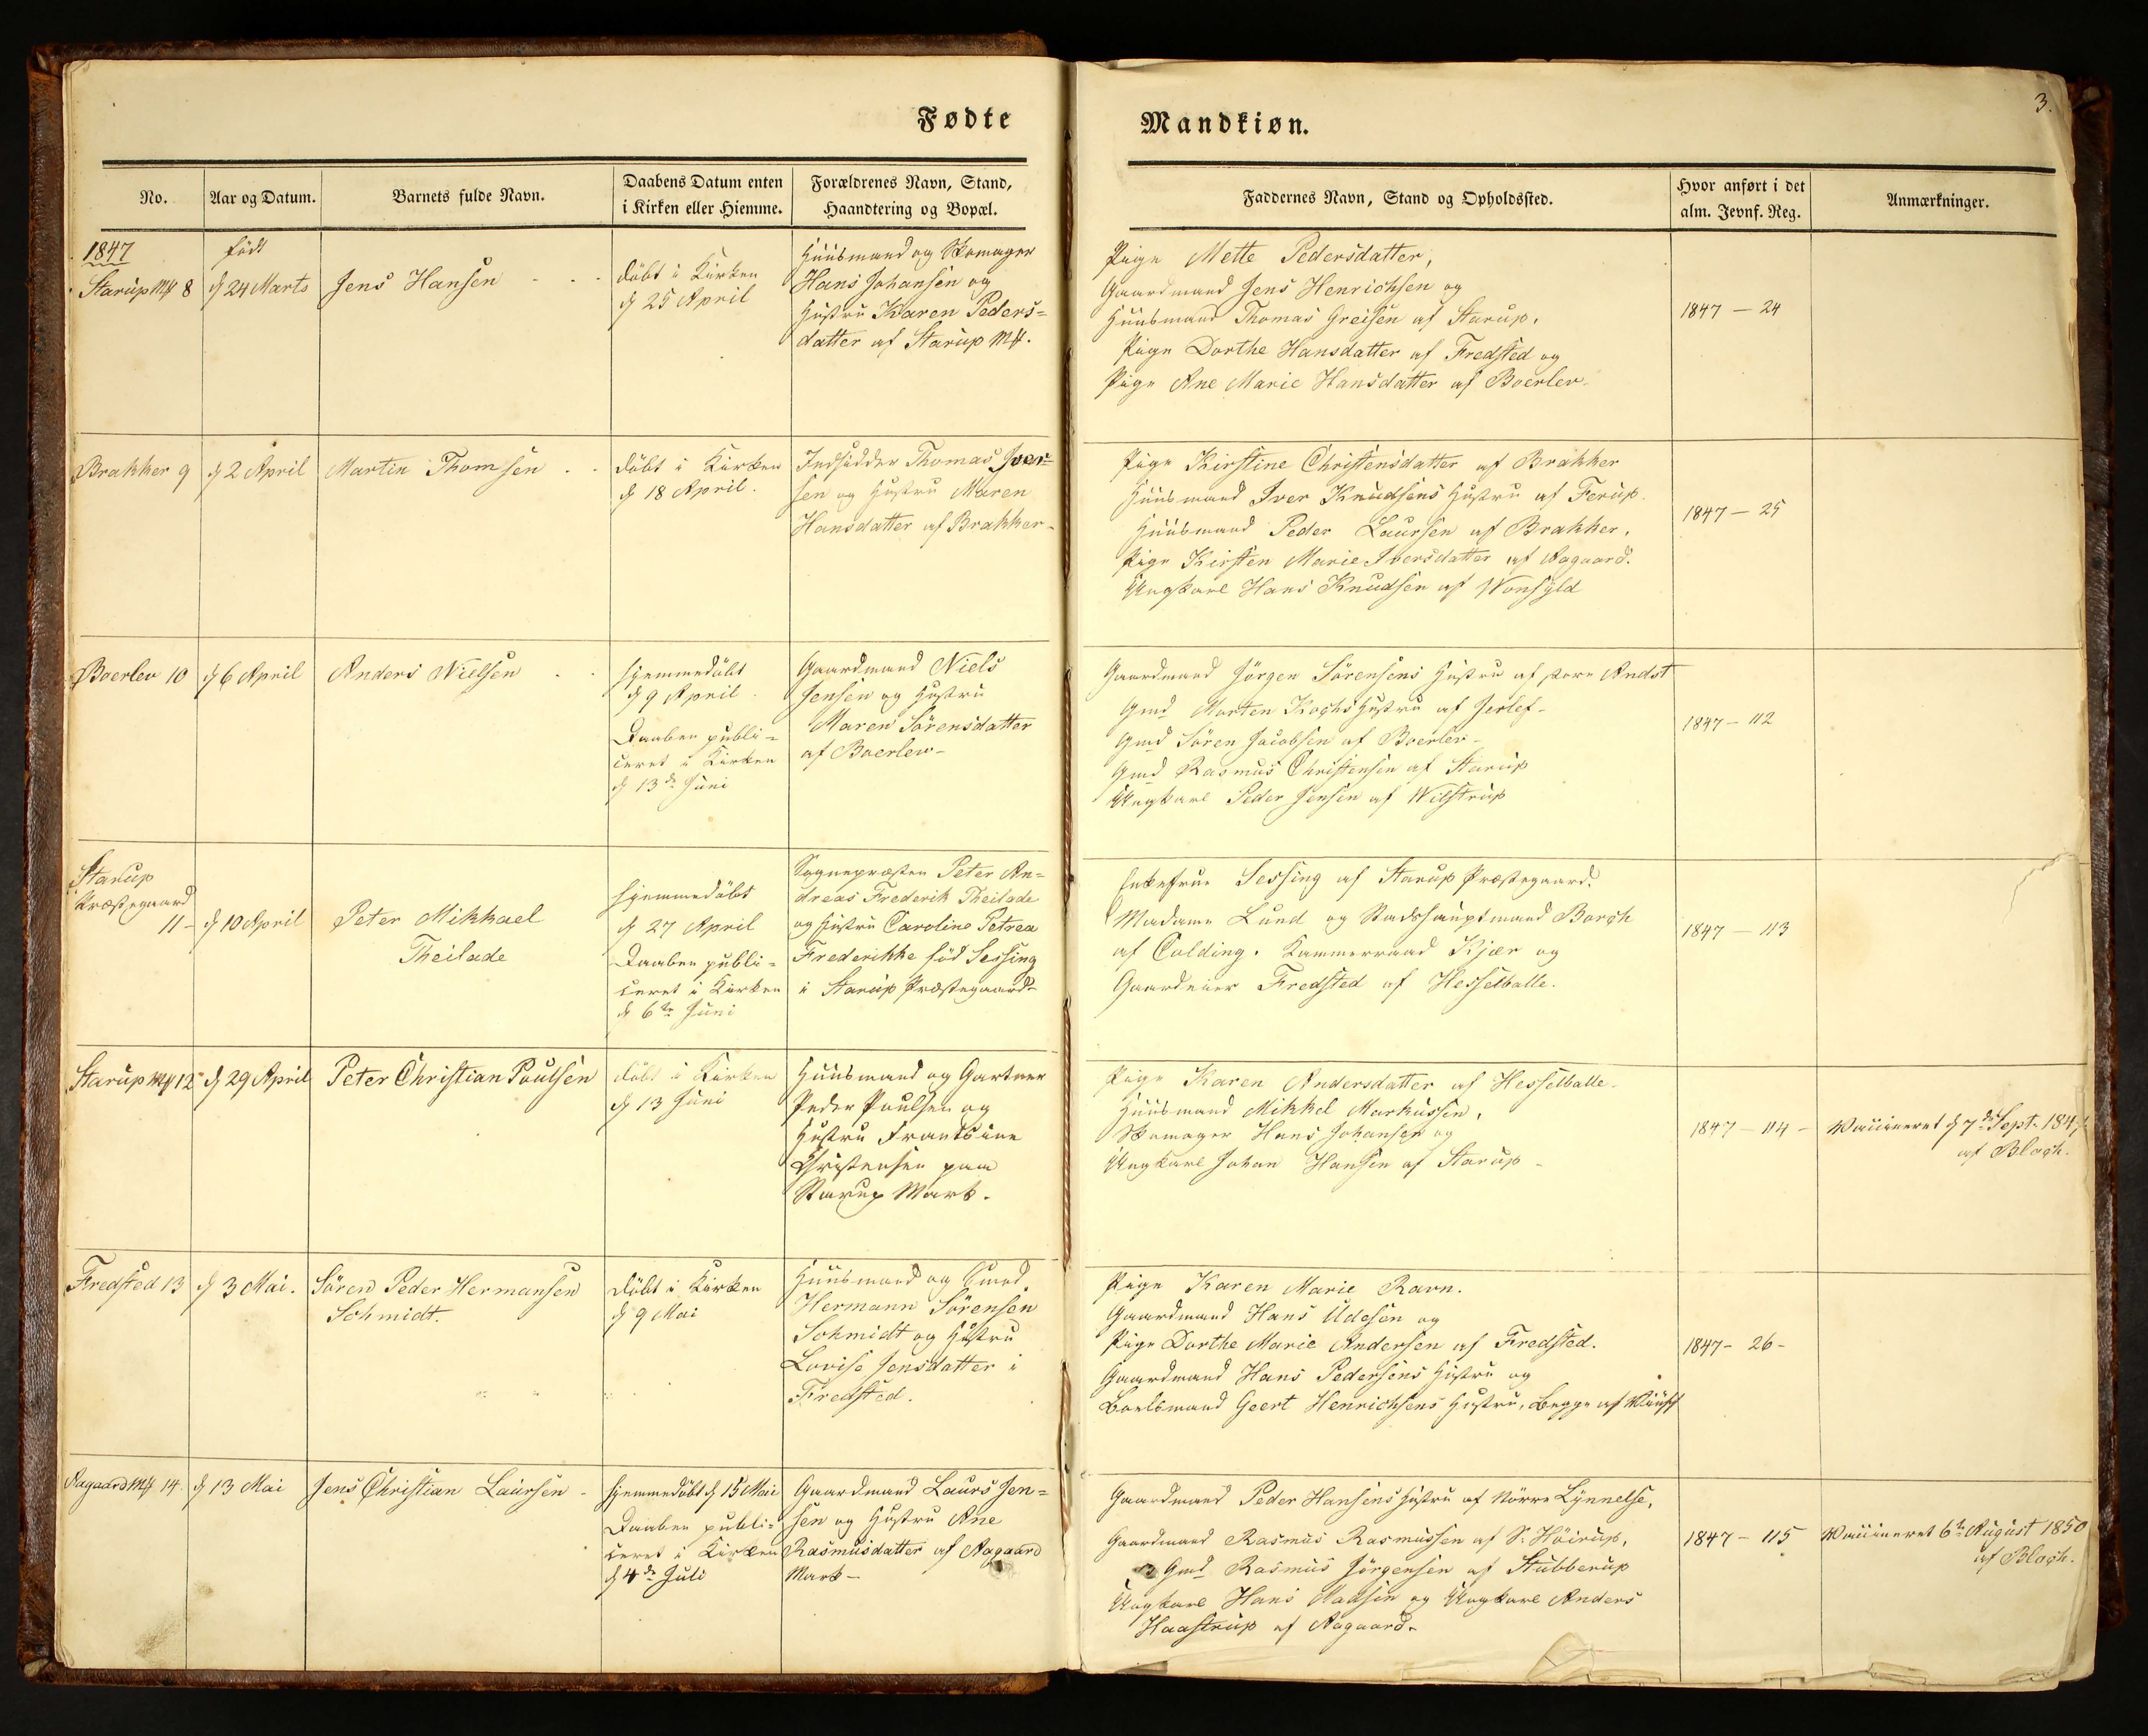 Fødte
Mandkiøn.
3.
No.
Aar og Datum.
Barnets fulde Navn.
Daabens Datum enten
i Kirken eller Hiemme.
Forældrenes Navn, Stand,
Haandtering og Bopæl.
Faddernes Navn, Stand og Opholdssted.
Hvor anført i det
alm. Jevnf. Reg.
Anmærkninger.
1847
Starup Mk 8
født
d 24 Marts
Jens Hansen
döbt i Kirken
d 25 April
Huusmand og Skomager
Hans Johansen og
Hustru Karen Peders=
datter af Starup Mk.
Pige Mette Pedersdatter,
Gaardmand Jens Henrichsen og
Huusmand Thomas Greisen af Starup.
Pige Dorthe Hansdatter af Fredsted og
Pige Ane Marie Hansdatter af Boerlev
1847 — 24
Brakker 9
d 2 April
Martin Thomsen
döbt i Kirken
d 18 April.
Indsidder Thomas Iver=
sen og Hustru Maren
Hansdatter af Brakker
Pige Kirstine Christensdatter af Brakker
Huusmand Iver Knudsens Hustru af Ferup.
Huusmand Peder Laursen af Brakker.
Pige Kirsten Marie Iversdatter af Aagaard.
Ungkarl Hans Knudsen af Wonsyld
1847 — 25
Boerlev 10
d 6 April
Anders Nielsen
hjemmedöbt
d 9 April
Daaben publi=
ceret i Kirken
d 13de Juni
Gaardmand Niels
Jensen og Hustru
Maren Sörensdatter
af Boerlev
Gaardmand Jörgen Sörensens Hustru af store Andst
Gmd Morten Kochs Hustru af Jerlef
Gmd Sören Jacobsen af Boerlev
Gmd Rasmus Christensen af Starup
Ungkarl Peder Jensen af Wilstrup
1847 — 112
Starup
Præstegaard
11
d 10 April
Peter Mikkael
Theilade
hjemmedöbt
d 27 April
Daaben publi=
ceret i Kirken
d 6te Juni
Sognepræsten Peter An=
dreas Frederik Theilade
og Hustru Caroline Petrea
Frederikke föd Sessing
i Starup Præstegaard
Enkefrue Sessing af Starup Præstegaard.
Madame Lund og Stadshauptmand Borch
af Colding. Kammerraad Kjær og
Gaardeier Fredsted af Hesselballe.
1847 — 113
Starup Mk 12
d 29 April
Peter Christian Poulsen
döbt i Kirken
d 13 Juni
Huusmand og Gartner
Peder Poulsen og
Hustru Frantsine
Christensen paa
Starup Mark.
Pige Karen Andersdatter af Hesselballe
Huusmand Mikkel Markussen,
Skomager Hans Johansen og
Ungkarl Johan Hansen af Starup
1847 — 114
Vaccineret d 7de Sept. 1847
af Bloch.
Fredsted 13
d 3 Mai.
Sören Peder Hermansen
Schmidt.
döbt i Kirken
d 9 Mai
Huusmand og Smed
Hermann Sörensen
Schmidt og Hustru
Lovise Jensdatter i
Fredsted.
Pige Karen Marie Ravn.
Gaardmand Hans Udesen og
Pige Dorthe Marie Andersen af Fredsted.
Gaardmand Hans Pedersens Hustru og
Boelsmand Geert Henrichsens Hustru, begge af
1847 - 26
Aagaard Mk 14
d 13 Mai
Jens Christian Laursen
hjemmedöbt d 15 Mai
Daaben publi=
ceret i Kirken
d 4de Juli
Gaardmand Laurs Jen=
sen og Hustru Ane
Rasmusdatter af Aagaard
Mark
Gaardmand Peder Hansens Hustru af Nörre Lynnelse,
Gaardmand Rasmus Rasmussen af Sr Höirup,
Gmd Rasmus Jörgensen af Stubberup
Ungkarl Hans Madsen og Ungkarl Anders
Haastrup af Aagaard
1847 — 115
Vaccineret 6te August 1850
af Bloch.